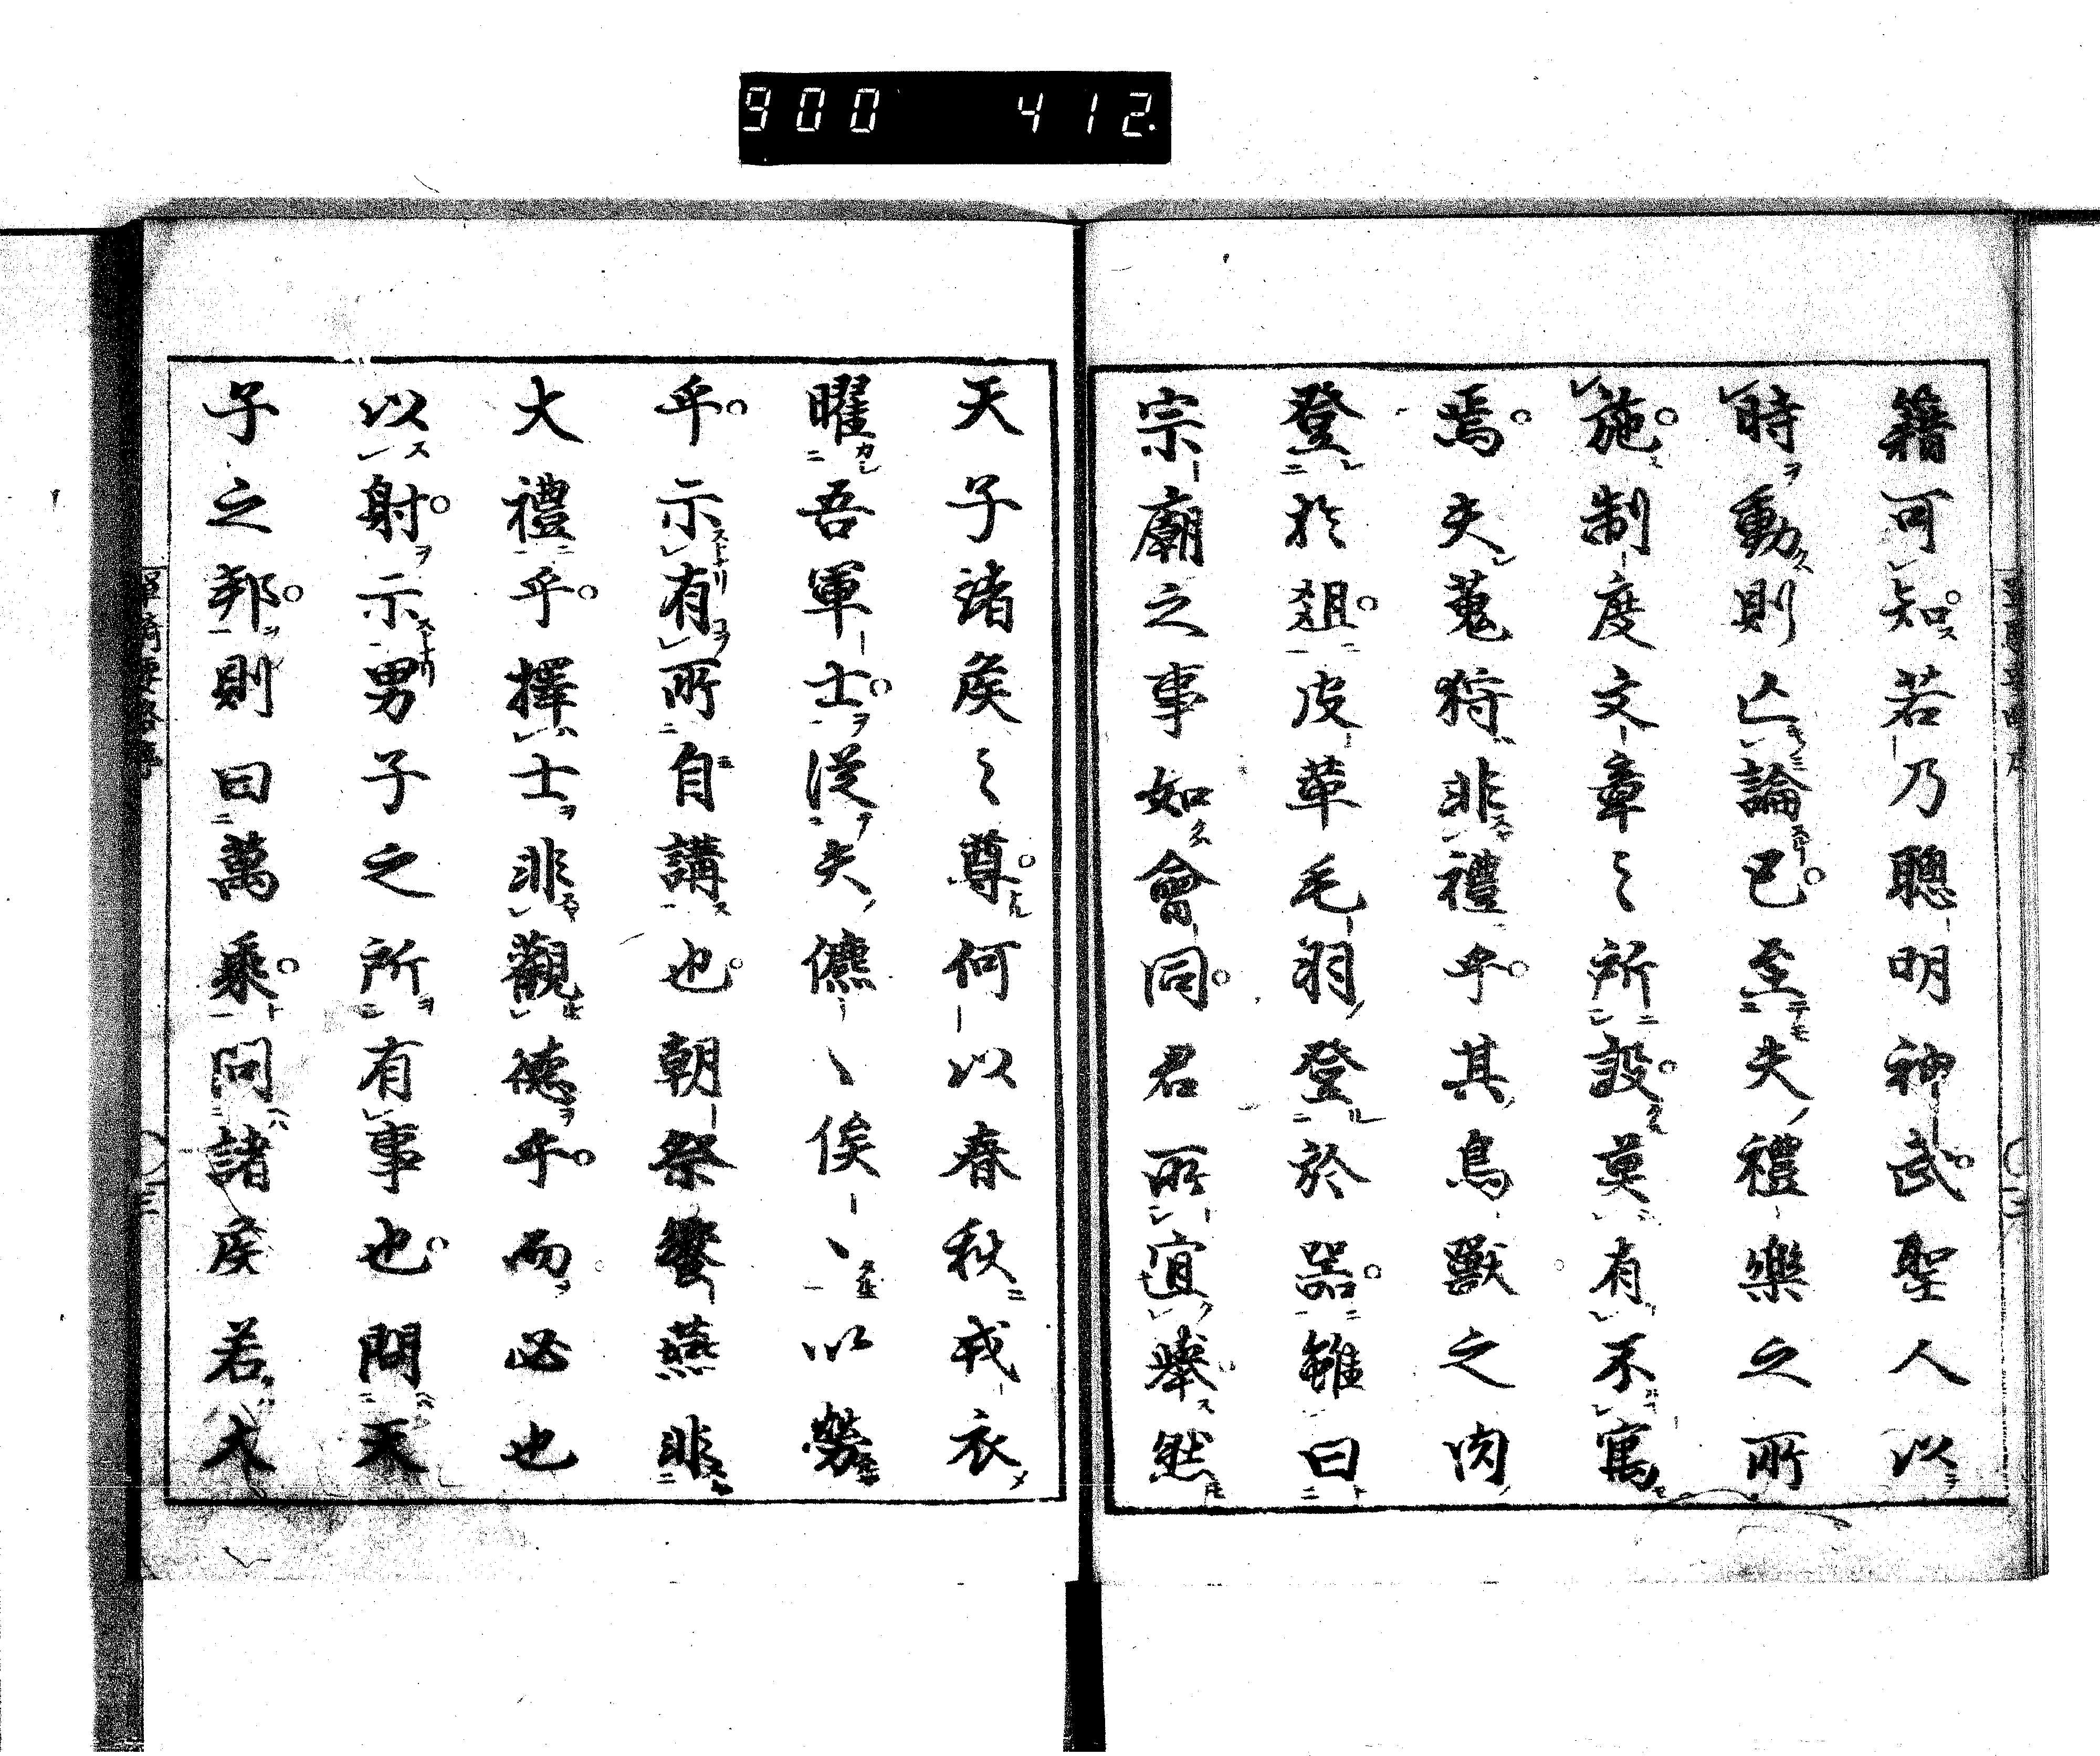 900 412.
籍可知若乃聰明神武聖人以
時動則亡論已至夫禮樂之所
施制度文章之所設莫有不寓
焉夫蒐狩非禮乎其鳥獸之肉
登於俎皮革毛羽登於器雖曰
宗廟之事如會同君所宜舉然
天子諸矦之尊何以春秋戎衣
曜吾軍士從夫儦〻俟〻以勞
乎示有所自講也朝祭饗燕非
大禮乎擇士非觀德乎而必也
以射示男子之所有事也問天
子之邦則曰萬乘問諸矦若大